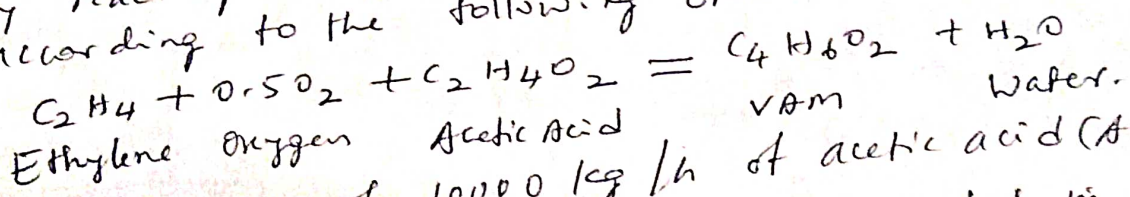 according to the following
C2H4 + 0.5O2 + C2H4O2 = C4H6O2 + H2O
Ethylene Oxygen Acetic Acid VAM Water.
10000 kg/h of acetic acid (A